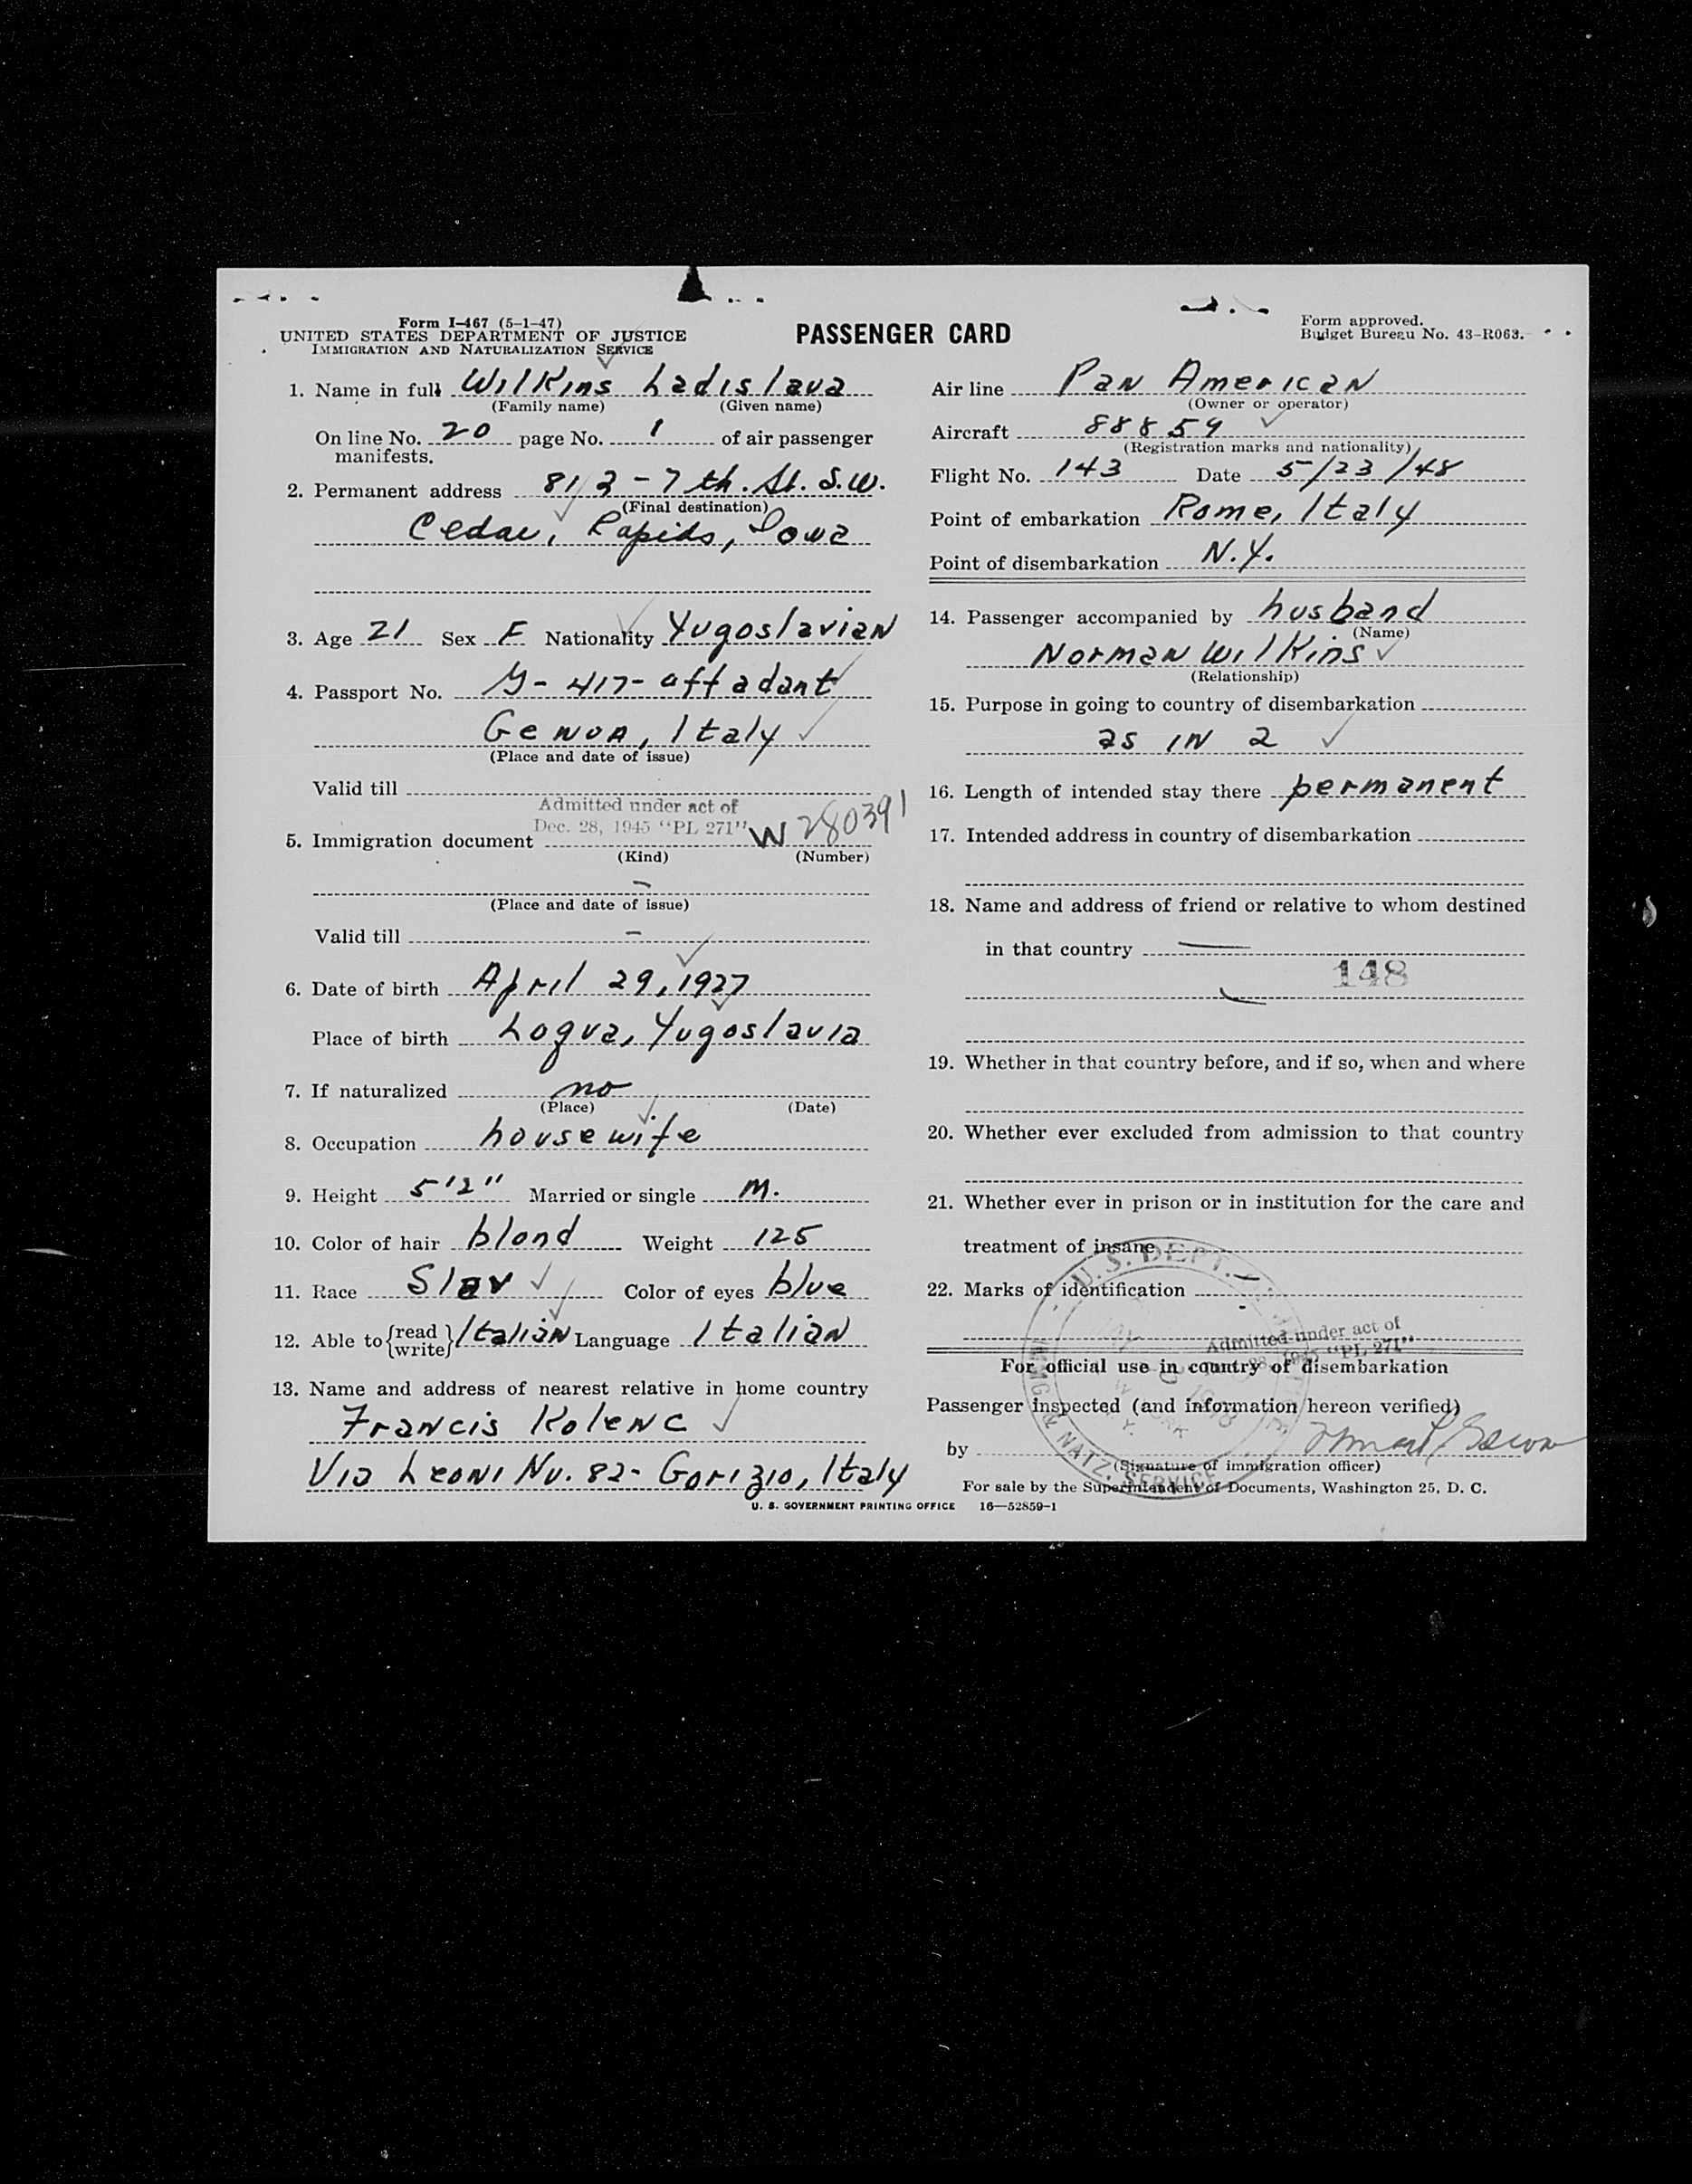 Form I-467 (5-1-47)
UNITED STATES DEPARTMENT OF JUSTICE
IMMIGRATION AND NATURALIZATION SERVICE
PASSENGER CARD
Form approved.
Budget Bureau No. 43-R063.
1. Name in full Wilkins Ladislava
(Family name) (Given name)
On line No. 20 page No. 1 of air passenger
manifests.
2. Permanent address 812 - 7th. St. S.W.
(Final destination)
Cedar, Rapids, Iowa
3. Age 21 Sex F Nationality Yugoslavian
4. Passport No. 417- affadant
Genoa, Italy
(Place and date of issue)
Valid till
Admitted under act of
Dec. 28, 1945 "PL 271"
5. Immigration document W 280391
(Kind) (Number)
-
(Place and date of issue)
Valid till -
6. Date of birth April 29, 1927
Place of birth Logva, Yugoslavia
7. If naturalized no
(Place) (Date)
8. Occupation housewife
9. Height 5'2" Married or single M.
10. Color of hair blond Weight 125
11. Race Slav Color of eyes blue
12. Able to {read write} Italian Language Italian
13. Name and address of nearest relative in home country
Francis Kolenc
Via Leoni No. 82- Gorizio, Italy
Air line Pan American
(Owner or operator)
Aircraft 88859
(Registration marks and nationality)
Flight No. 143 Date 5/23/48
Point of embarkation Rome, Italy
Point of disembarkation N.Y.
14. Passenger accompanied by husband
(Name)
Norman Wilkins
(Relationship)
15. Purpose in going to country of disembarkation
as in 2
16. Length of intended stay there permanent
17. Intended address in country of disembarkation
18. Name and address of friend or relative to whom destined
in that country
148
19. Whether in that country before, and if so, when and where
20. Whether ever excluded from admission to that country
21. Whether ever in prison or in institution for the care and
treatment of insane
22. Marks of identification
Admitted under act of
"PL 271"
For official use in country of disembarkation
Passenger inspected (and information hereon verified)
by
(Signature of immigration officer)
U. S. DEPT.
IMMG. & NATZ. SERVICE
For sale by the Superintendent of Documents, Washington 25, D. C.
U. S. GOVERNMENT PRINTING OFFICE 16—52859-1